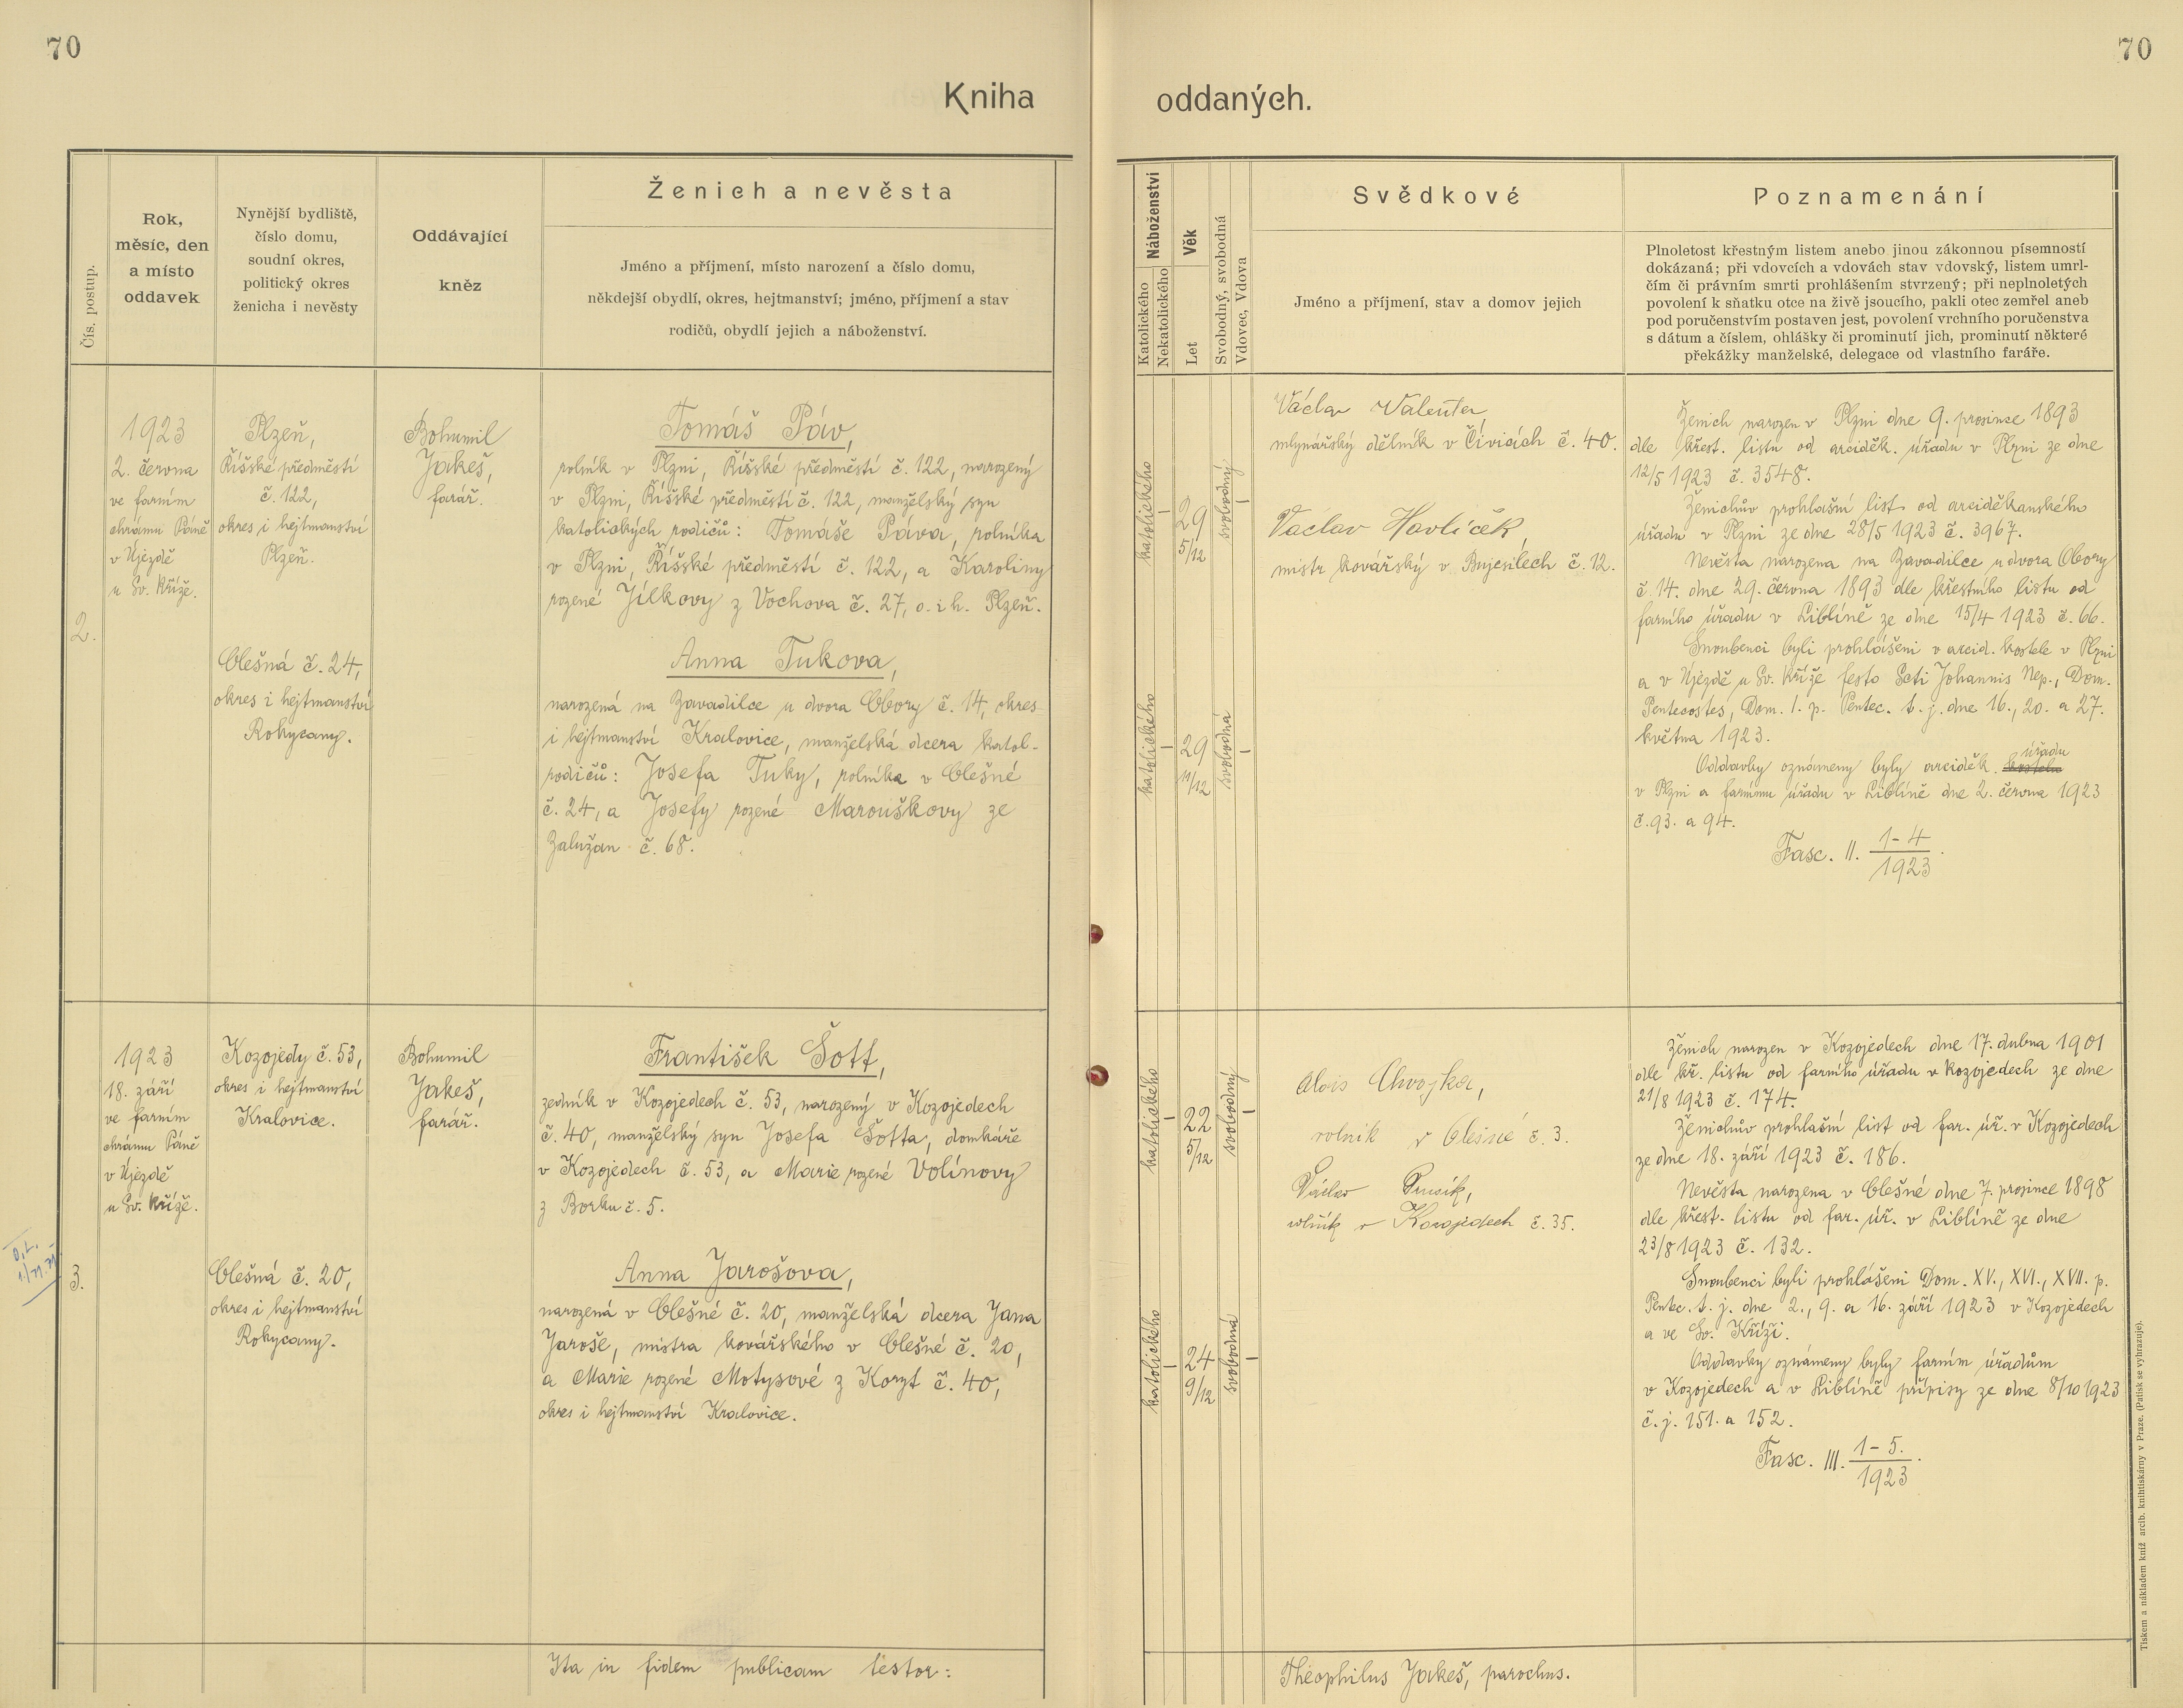 70
70
Kniha
oddaných.
Čís. postup.
Rok,
měsíc, den
a místo
oddavek
Nynější bydliště,
číslo domu,
soudní okres,
politický okres
ženicha i nevěsty
Oddávající
kněz
Ženich a nevěsta
Jméno a příjmení, místo narození a číslo domu,
někdejší obydlí, okres, hejtmanství; jméno, příjmení a stav
rodičů, obydlí jejich a náboženství.
Náboženství
Katolického
Nekatolického
Věk
Let
Svobodný, svobodná
Vdovec, Vdova
Svědkové
Jméno a příjmení, stav a domov jejich
Poznamenání
Plnoletost křestným listem anebo jinou zákonnou písemností
dokázaná; při vdovcích a vdovách stav vdovský, listem umrl-
čím či právním smrti prohlášením stvrzený; při neplnoletých
povolení k sňatku otce na živě jsoucího, pakli otec zemřel aneb
pod poručenstvím postaven jest, povolení vrchního poručenstva
s dátum a číslem, ohlášky či prominutí jich, prominutí některé
překážky manželské, delegace od vlastního faráře.
2.
1923
2. června
ve farním
chrámu Páně
v Újezdě
u Sv. Kříže.
Plzeň,
Říšské předměstí
č. 122,
okres i hejtmanství
Plzeň.
Olešná č. 24,
okres i hejtmanství
Rokycany.
Bohumil
Jakeš,
farář.
Tomáš Páv,
rolník v Plzni, Říšské předměstí č. 122, narozený
v Plzni, Říšské předměstí č. 122, manželský syn
katolických rodičů: Tomáše Páva, rolníka
v Plzni, Říšské předměstí č. 122, a Karoliny
rozené Jílkovy z Vochova č. 27, o. i h. Plzeň.
Anna Tukova,
narozená na Zavadilce u dvora Obory č. 14, okres
i hejtmanství Kralovice, manželská dcera katol.
rodičů: Josefa Tuky, rolníka v Olešné
č. 24, a Josefy rozené Marouškovy ze
Zalužan č. 68.
katolického
29
5/12
svobodný
katolického
29
11/12
svobodná
Václav Valenter,
mlynářský dělník v Čívicích č. 40.
Václav Havlíček,
mistr kovářský v Bujesilech č. 12.
Ženich narozen v Plzni dne 9. prosince 1893
dle křest. listu od arciděk. úřadu v Plzni ze dne
12/5 1923 č. 3548.
Ženichův prohlašní list od arciděkanského
úřadu v Plzni ze dne 28/5 1923 č. 3967.
Nevěsta narozena na Zavadilce u dvora Obory
č. 14. dne 29. června 1893 dle křestního listu od
farního úřadu v Liblíně ze dne 15/4 1923 č. 66.
Snoubenci byli prohlášeni v arcid. kostele v Plzni
a v Újezdě u Sv. Kříže festo Scti Johannis Nep., Dom.
Pentecostes, Dom. I. p. Pentec. t. j. dne 16., 20. a 27.
května 1923.
úřadu
Oddavky oznámeny byly arciděk. kostelu
v Plzni a farnímu úřadu v Liblíně dne 2. června 1923
č. 93. a 94.
Fasc. II. 1-4
1923
3.
1923
18. září
ve farním
chrámu Páně
v Újezdě
u Sv. Kříže.
Kozojedy č. 53,
okres i hejtmanství
Kralovice.
Olešná č. 20,
okres i hejtmanství
Rokycany.
Bohumil
Jakeš,
farář.
František Šott,
zedník v Kozojedech č. 53, narozený v Kozojedech
č. 40, manželský syn Josefa Šotta, domkáře
v Kozojedech č. 53, a Marie rozené Volínovy
z Borku č. 5.
Anna Jarošova,
narozená v Olešné č. 20, manželská dcera Jana
Jaroše, mistra kovářského v Olešné č. 20,
a Marie rozené Motysové z Koryt č. 40,
okres i hejtmanství Kralovice.
katolického
22
5/12
svobodný
katolického
24
9/12
svobodná
Alois Chvojka,
rolník v Olešné č. 3.
Václav
rolník v Kozojedech č. 35.
Ženich narozen v Kozojedech dne 17. dubna 1901
dle kř. listu od farního úřadu v Kozojedech ze dne
21/8 1923 č. 174.
Ženichův prohlašní list od far. úř. v Kozojedech
ze dne 18. září 1923 č. 186.
Nevěsta narozena v Olešné dne 7. prosince 1898
dle křest. listu od far. úř. v Liblíně ze dne
23/8 1923 č. 132.
Snoubenci byli prohlášeni Dom. XV., XVI., XVII. p.
Pentec. t. j. dne 2., 9. a 16. září 1923 v Kozojedech
a ve Sv. Kříži.
Oddavky oznámeny byly farním úřadům
v Kozojedech a v Liblíně přípisy ze dne 8/10 1923
č. j. 151. a 152.
Fasc. III. 1-5.
1923
Ita in fidem publicam testor:
Theophilus Jakeš, parochus.
Tiskem a nákladem kníž. arcib. knihtiskárny v Praze. (Patisk se vyhrazuje).